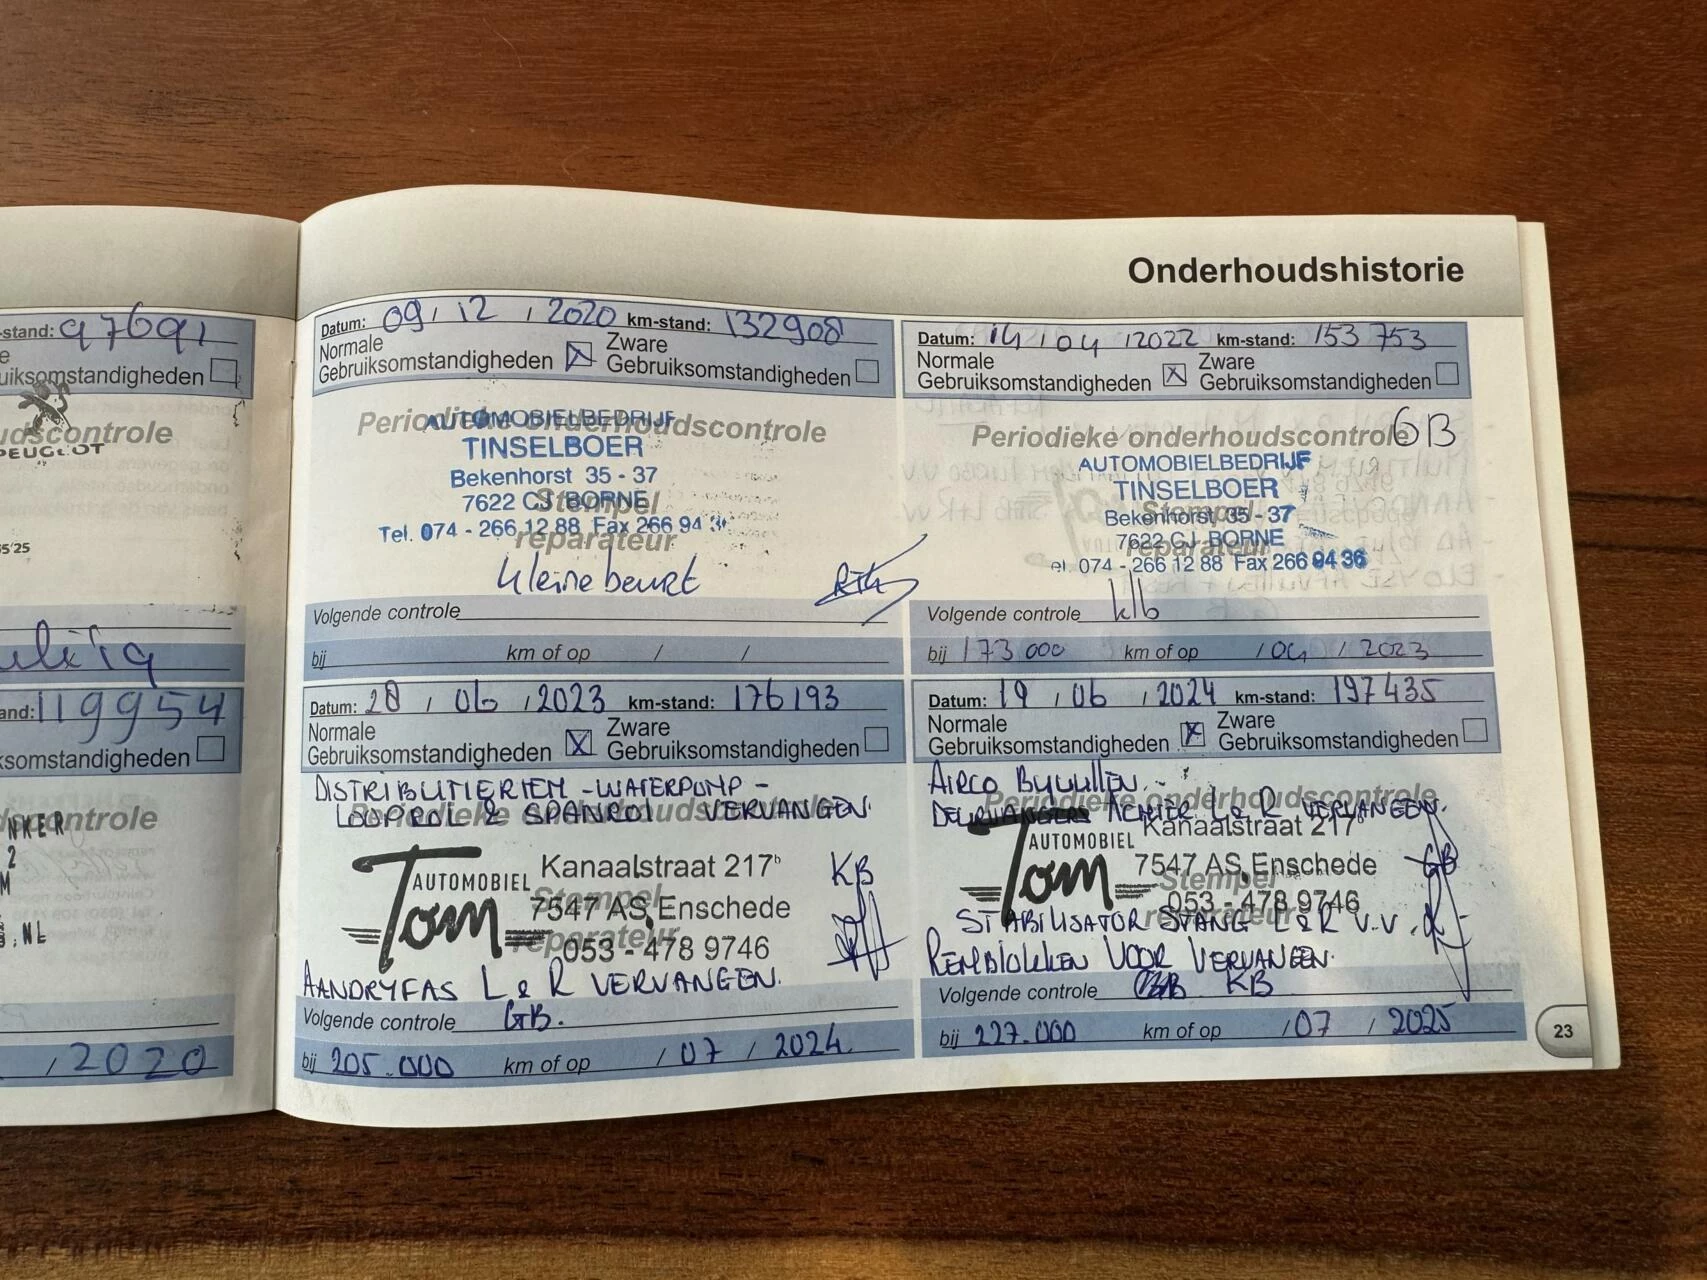 Onderhoudshistorie
-stand: 97691
uiksomstandigheden
udscontrole
PEUGEOT
55'25
and: 119954
ksomstandigheden
NKER
ontrole
2
M
.NL
/ 2020
Datum: 09 / 12 / 2020 km-stand: 132908
Normale Zware
Gebruiksomstandigheden Gebruiksomstandigheden
Periodieke onderhoudscontrole
AUTOMOBIELBEDRIJF
TINSELBOER
Bekenhorst 35 - 37
7622 CJ BORNE
Stempel
Tel. 074 - 266 12 88 Fax 266 94
reparateur
Kleine beurt
Volgende controle
bij km of op / /
Datum: 14 / 04 / 2022 km-stand: 153 753
Normale Zware
Gebruiksomstandigheden Gebruiksomstandigheden
Periodieke onderhoudscontrole GB
AUTOMOBIELBEDRIJF
TINSELBOER
Stempel
Bekenhorst 35 - 37
7622 CJ BORNE
reparateur
el. 074 - 266 12 88 Fax 266 94 36
Volgende controle klb
bij 173 000 km of op / 04 / 2023
Datum: 28 / 06 / 2023 km-stand: 176193
Normale Zware
Gebruiksomstandigheden Gebruiksomstandigheden
DISTRIBUTIERIEM - WATERPOMP -
LOOPROL & SPANROL VERVANGEN.
Periodieke onderhoudscontrole
Kanaalstraat 217b KB
AUTOMOBIEL
Tom 7547 AS Enschede
Stempel
053 - 478 9746
reparateur
AANDRYFAS L & R VERVANGEN.
Volgende controle GB.
bij 205.000 km of op / 07 / 2024
Datum: 19 / 06 / 2024 km-stand: 197435
Normale Zware
Gebruiksomstandigheden Gebruiksomstandigheden
AIRCO BYVULLEN.
Periodieke onderhoudscontrole
ACHTER L & R VERVANGEN.
Kanaalstraat 217b
AUTOMOBIEL
Tom 7547 AS Enschede GB
Stempel
053 - 478 9746
reparateur
STABILISATOR STANG L & R V.V.
REMBLOKKEN VOOR VERVANGEN.
Volgende controle KB
bij 227.000 km of op / 07 / 2025
23